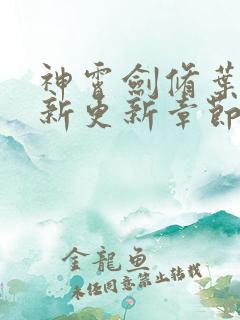 神霄劍脩葉
新更新章節
金龍魚
未经同意禁止转载